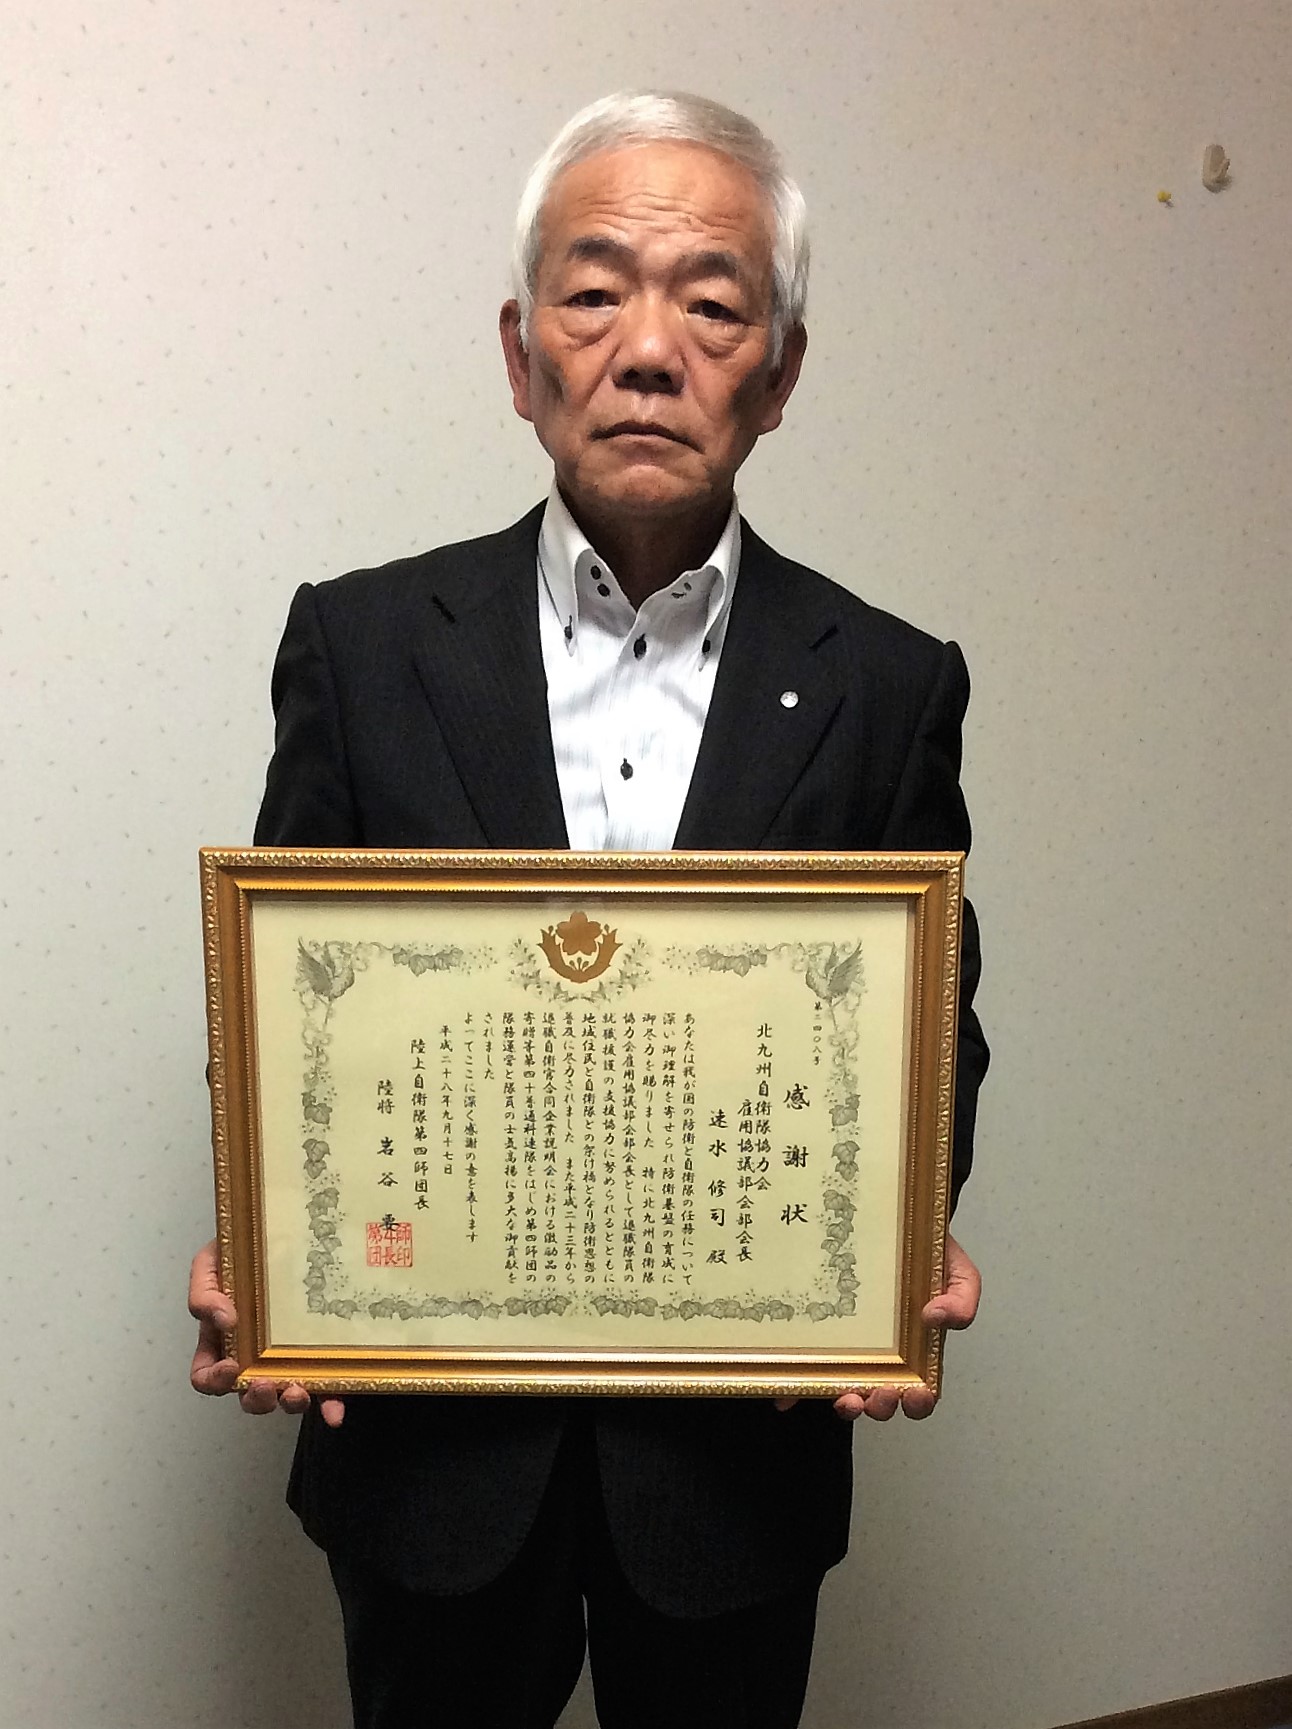 第二四〇八号
感謝状
北九州自衛隊協力会
雇用協議部会部会長
速水修司殿
あなたは我が国の防衛と自衛隊の任務について
深い御理解を寄せられ防衛基盤の育成に
御尽力を賜りました　特に北九州自衛隊
協力会雇用協議部会部会長として退職隊員の
就職援護の支援協力に努められるとともに
地域住民と自衛隊との架け橋となり防衛思想の
普及に尽力されました　また平成二十三年から
退職自衛官合同企業説明会における激励品の
寄贈等第四十普通科連隊をはじめ第四師団の
隊務運営と隊員の士気高揚に多大な御貢献を
されました
よってここに深く感謝の意を表します
平成二十八年九月十七日
陸上自衛隊第四師団長
陸将　岩谷　要
第4師
団長印